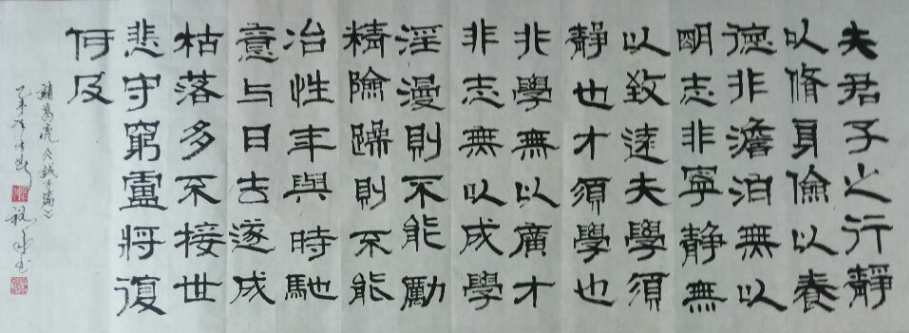 夫君子之行靜
以脩身儉以養
德非澹泊無以
明志非寧靜無
以致遠夫學須
靜也才須學也
非學無以廣才
非志無以成學
淫漫則不能勵
精險躁則不能
冶性年與時馳
意与日去遂成
枯落多不接世
悲守窮盧將復
何及
諸葛亮《誡子篇》
乙未年仲春